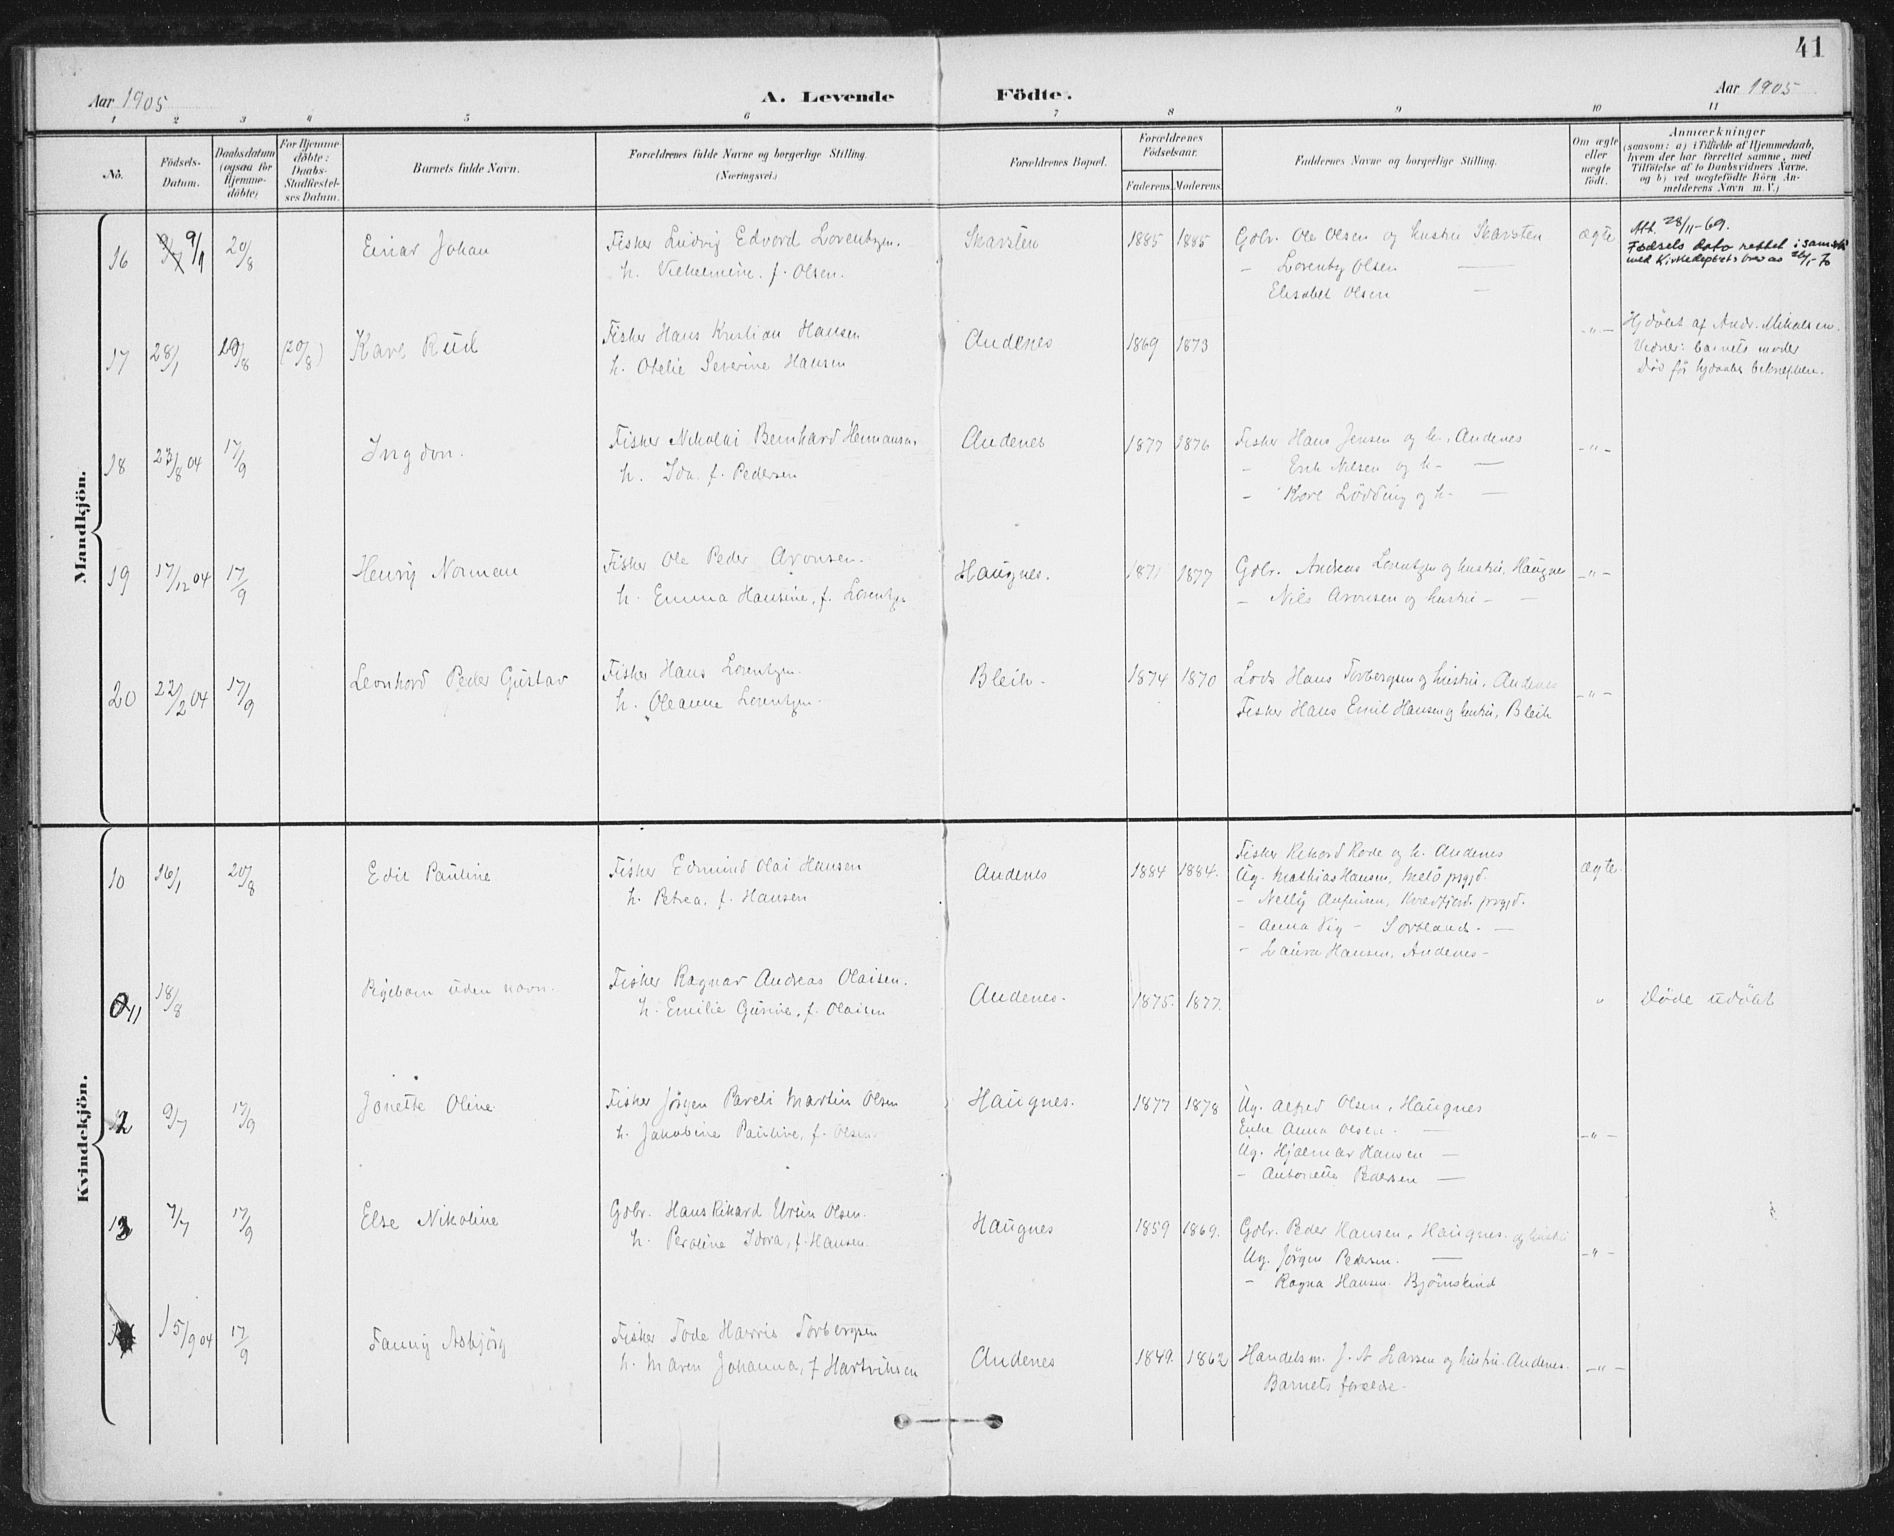 41
Aar 1905
A. Levende Födte.
Aar 1905
1 2 3 4 5 6 7 8 9 10 11
No.
Födsels-
Datum.
Daabsdatum
(ogsaa for
Hjemme-
döbte)
For Hjemme-
döbte:
Daabs-
Stadfæstel-
ses Datum.
Barnets fulde Navn.
Forældrenes fulde Navne og borgerlige Stilling.
(Næringsvei.)
Forældrenes Bopæl.
Forældrenes
Födselsaar.
Faderens. Moderens.
Faddernes Navne og borgerlige Stilling.
Om ægte
eller
uægte
født.
Anmærkninger
(saasom: a) i Tilfælde af Hjemmedaab,
hvem der har forrettet samme, med
Tilföielse af to Daabsvidners Navne,
og b) ved uægtefödte Börn An-
melderens Navn m. V.)
Mandkjön.
16 9/1 20/8 Einar Johan
Fisker Ludvig Edvard Lorentzen.
h. Vilhelmine f. Olsen.
Skarsten 1885 1885
Gdbr. Ole Olsen og hustru Skarsten
- Olsen —
Elisabet Olsen —
ægte
Att. 28/11-69.
Fødsels dato rettet i samsv.
med Kirkedeptets brev av
17 28/1 20/8 (20/8)
Fisker Hans Kristian Hansen
h. Otelie Severine Hansen
Andenes 1869 1873
-"-
Hjdøbt af Andr. Mikalsen.
Vidner: barnets moder
Død før hjdaabs bekræftelse.
18 23/8 04 17/9 Ingdon.
Fisker Nikolai Bernhard Hermansen
h. Ida f. Pedersen
Andenes 1877 1876
Fisker Hans Jensen og h., Andenes
- Erik Nilsen og h- —
- Kore Lødding og h- —
-"-
19 17/12 04 17/9 Henry Norman
Fisker Ole Peder Aronsen.
h. Emma Hansine, f. Lorentzen
Haugnes. 1871 1877
Gdbr. Andreas Lorentzen og hustru, Haugnes
- Nils Aronsen og hustru - —
-"-
20 22/2 04 17/9 Leonhard Peder Gustav
Fisker Hans Lorentzen.
h. Oleanna Lorentzen.
Bleik - 1874 1870
Lods Hans Torbergsen og hustru, Andenes
Fisker Hans Emil Hansen og hustru, Bleik
-"-
Kvindekjön.
10 16/1 20/8 Edit Pauline
Fisker Edmund Olai Hansen
h. Petrea, f. Hansen
Andenes 1884 1884.
Fisker Rikard Rode og h. Andenes
Ug. Mathias Hansen, Melö prgjd.
- Nelly Anfinsen, Kvædfjord prgjd.
- Anna Vig - Sortland - —
- Laura Hansen, Andenes -
ægte.
11 18/8 Pigebarn uden navn.
Fisker Ragnar Andreas Olaisen.
h. Emilie Gusine, f. Olaisen
Andenes. 1875. 1877.
"
Døde udøbt
12 9/7 17/9 Jonette Oline
Fisker Jørgen Pareli Martin Olsen
h. Jakobine Pauline, f. Olsen.
Haugnes. 1877 1878
Ug. Alfred Olsen, Haugnes
Enke Anna Olsen. —
Ug. Hjalmar Hansen —
- Antonette Pedersen —
-"-
13 7/7 17/9 Else Nikoline
Gdbr. Hans Rikard Ursin Olsen.
h. Peroline Idora, f. Hansen.
Haugnes 1859 1869.
Gdbr. Peder Hansen, Haugnes. og hustru
Ug. Jørgen Pedersen. —
- Ragna Hansen. Bjørnskind
-"-
15/9 04 17/9 Fanny Asbjørg
Fisker Tode Harris Torbergsen
h. Maren Johanna, f Hartviksen
Andenes 1849. 1862
Handelsm. J. A Larsen og hustru. Andenes.
Barnets forældre.
-"-